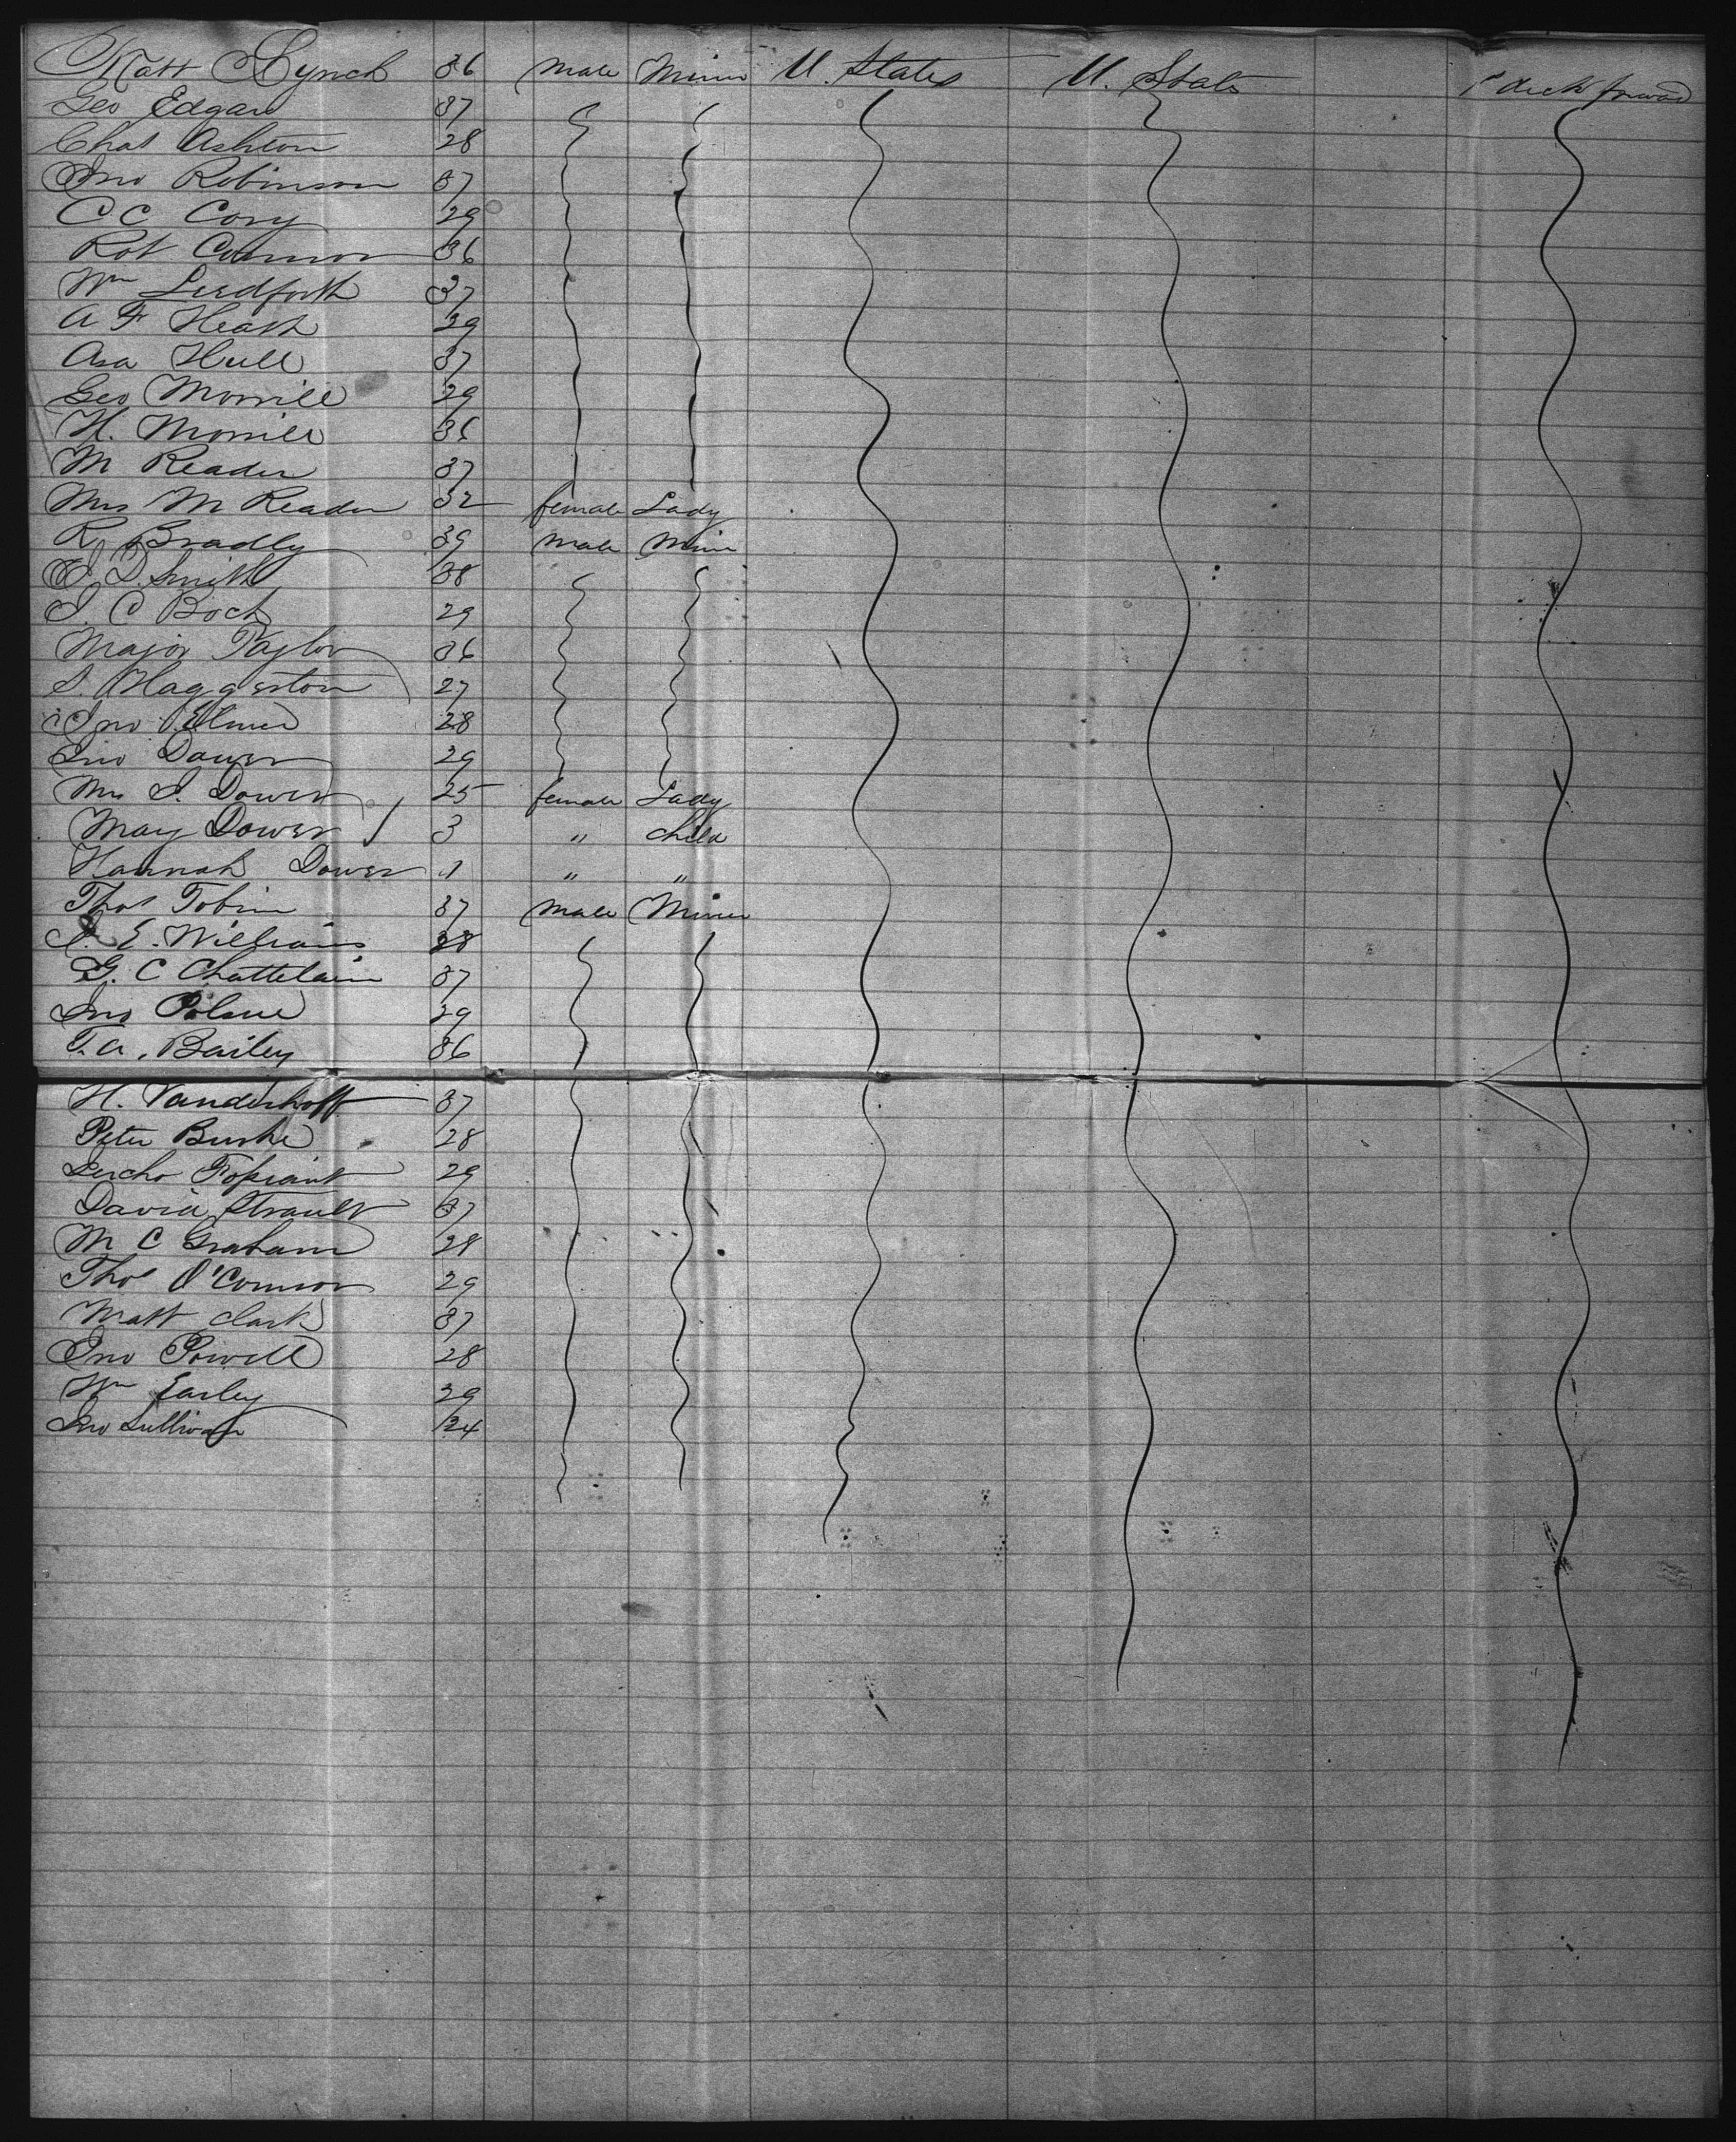 Matt Lynch 36 male Miner U. States U. States deck forward
Geo Edgar 37
Chas Ashton 28
Jno Robinson 37
C C Cory 29
Robt Connor 36
Wm Ludforth 37
A F Heath 29
Asa Hull 37
Geo Morrill 29
H. Morrill 36
M Reader 37
Mrs M Reader 32 female Lady
R Bradly 39 male Miner
D. Smith 38
J. C Boch 29
Major Taylor 36
S. Haggerston 27
Jno Elmer 28
Jno Dower 29
Mrs J. Dower 25 female Lady
May Dower 3 " child
Hannah Dower 1 " "
Thos Tobin 37 male Miner
J. E. Williams 38
G. C Chattelain 37
Jno 29
T. A. Bailey 36
H. Vanderhoff 37
Peter Burke 28
29
David Strault 37
M C Graham 28
Thos O'Connor 29
Matt Clark 37
Jno Powell 28
Wm Earley 29
Jno Sullivan 24